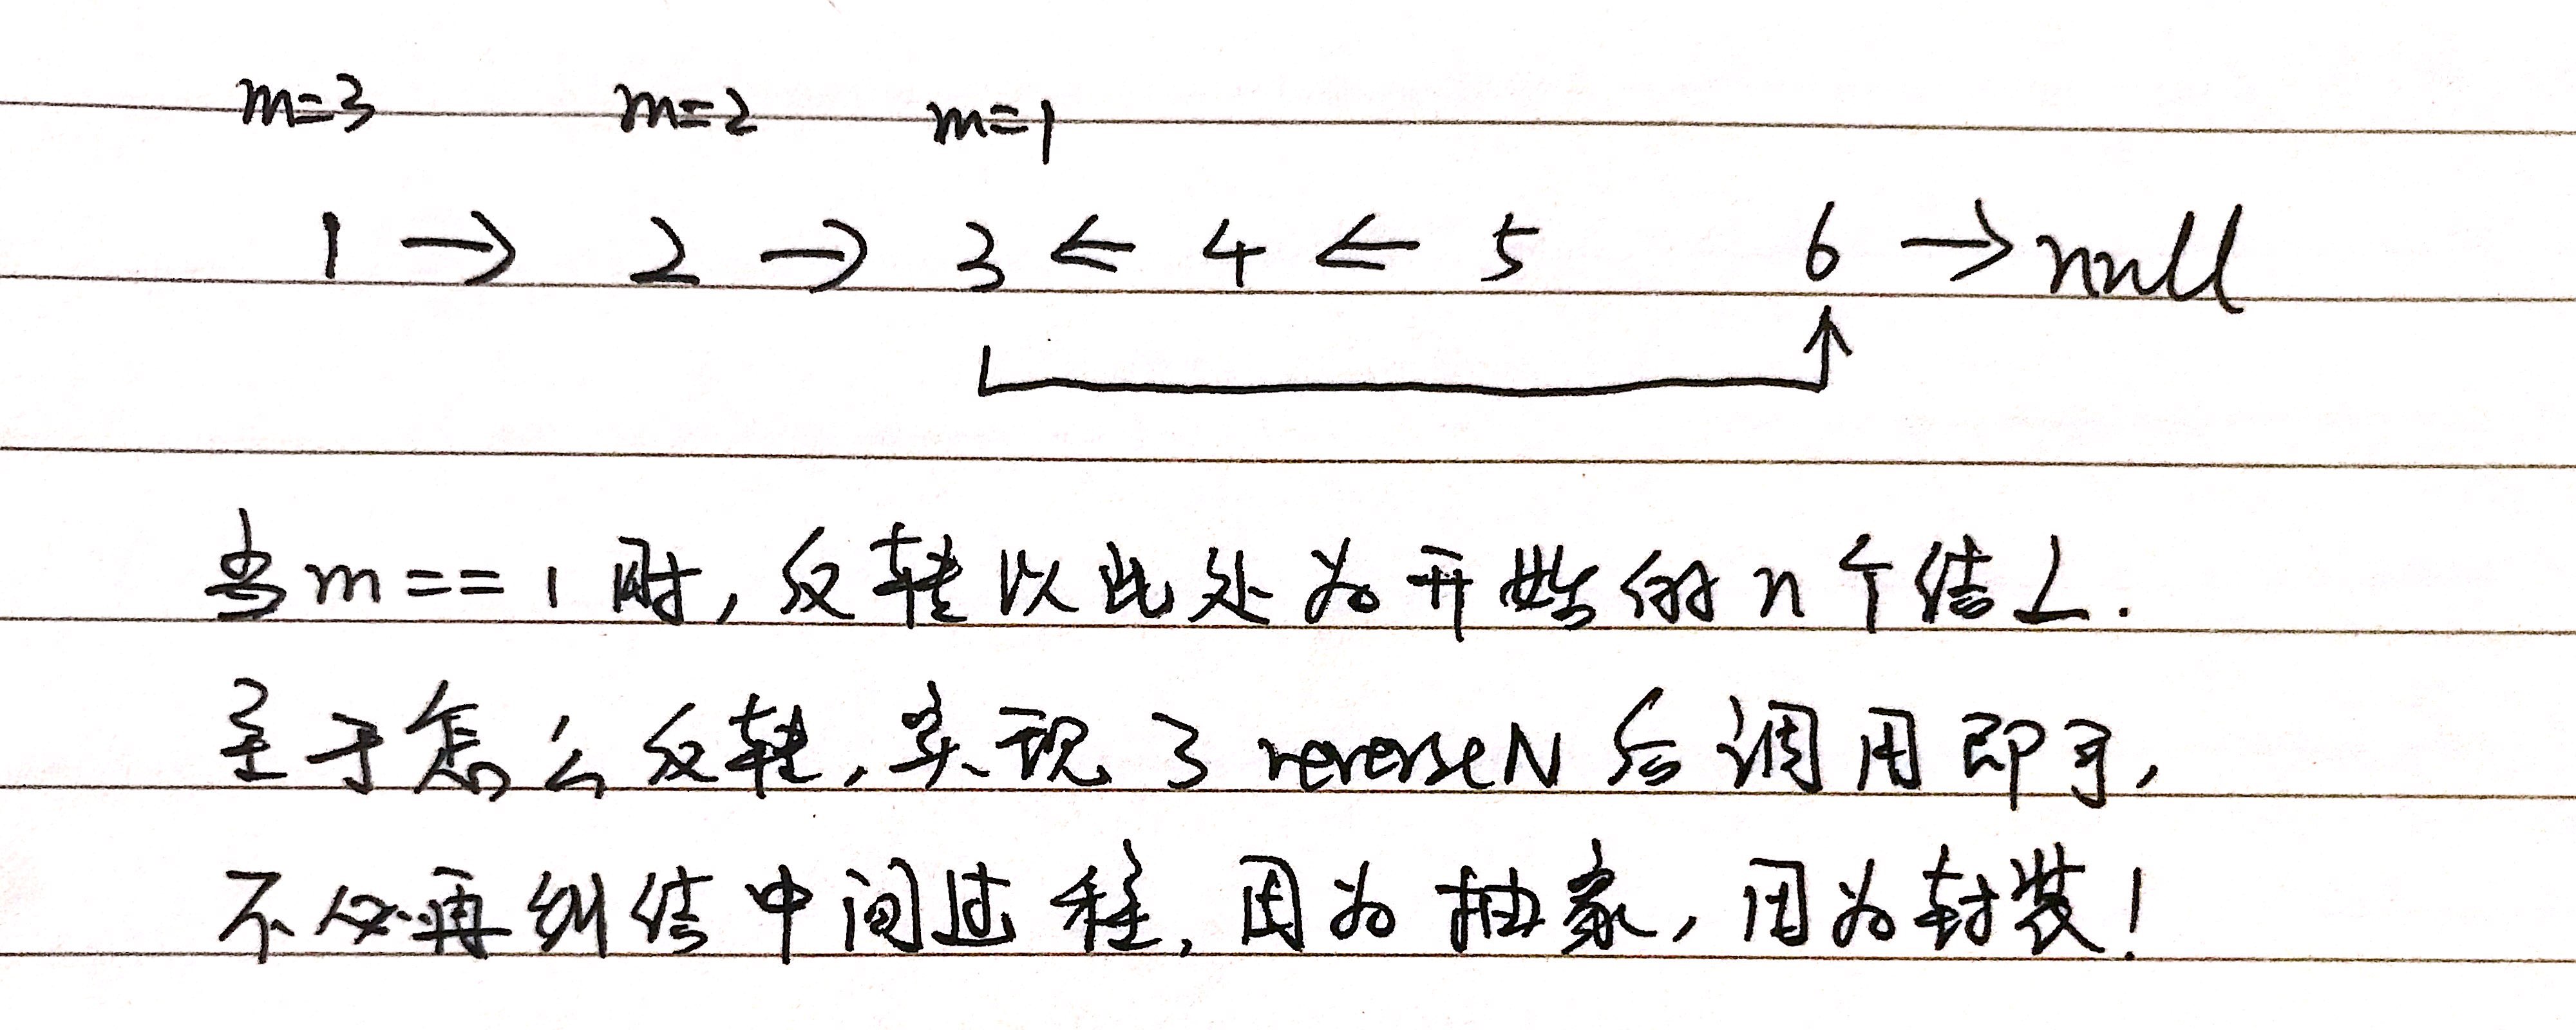 m=3 m=2 m=1
1 → 2 → 3 ← 4 ← 5 6 → null
当m==1时,反转以此处为开始的n个结上.
至于怎么反转,实现了reverseN后调用即可,
不必再纠结中间过程,因为抽象,因为封装!